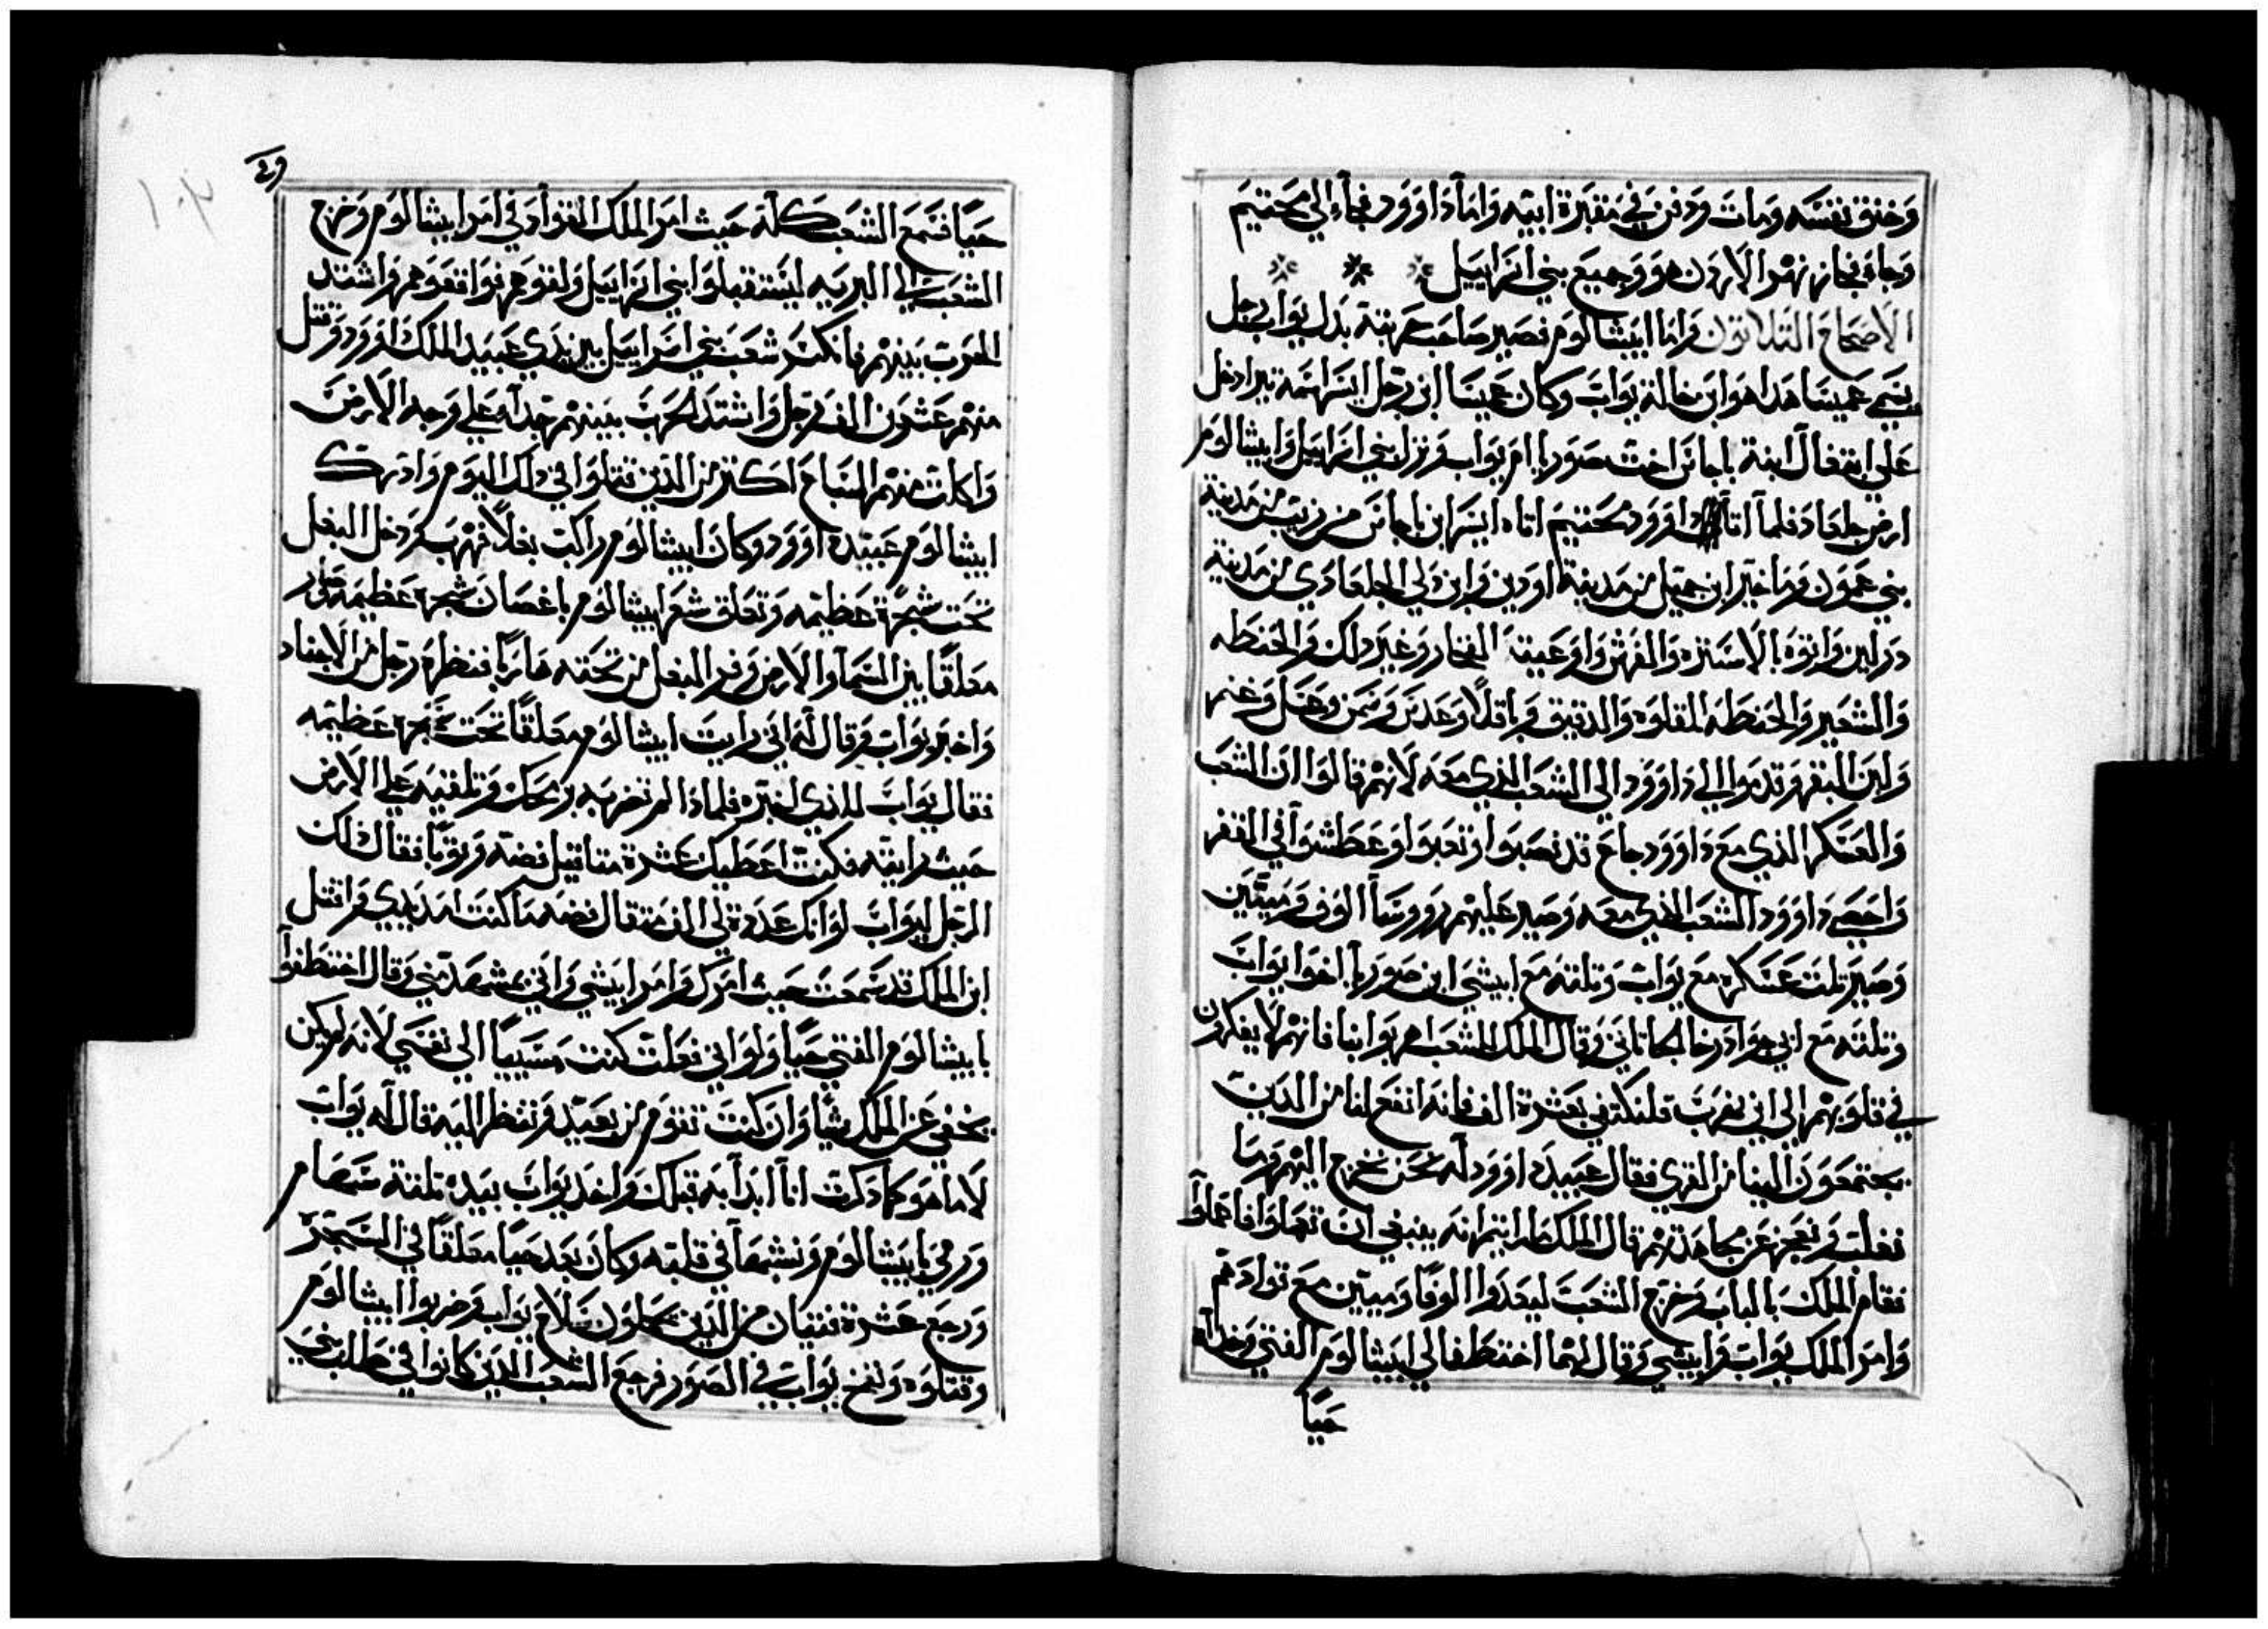 وخنق نفسه ومات ودفن في مقبرة ابيه واما داوود فجاء الي محنيم
وجاء فجاز نهر الاردن هو وجميع بني اسراييل
الاصحاح التلاتون واما ابيشالوم فصير صاحب حربته بدل يواب رجل
يسمي عميسا هدا هو ابن خالة يواب وكان عميسا ابن رجل اسراييلي دخل
علي ابيغال ابنة باحاش اخت صوريا ام يواب ونزل بني اسراييل وابيشالوم
ارض جلعاد فلما اتا داوود محنيم اتاه ابن ناحاش من مدينة
بني عمون وماخير ابن عميل من مدينة لودبر وبرزلي الجلعادي من مدينة
دولين واتوه بالاسره والفرش واوعية الفخار وغير دلك والحنطه
والشعير والحنطه المقلوه والدقيق وباقلا وعدس وسمن وعسل وغنم
ولبن البقر وقدموا الي داوود الي الشعب الذي معه لانهم قالوا ان الشعب
والعسكر الذي مع داوود جاع قد نصبوا وتعبوا وعطشوا في القفر
واحصي داوود الشعب الذي معه وصير عليهم رووسا الوف وميتين
وصير تلت عسكره مع يواب وتلته مع ابيشي ابن صوريا اخوا يواب
وتلته مع اتي الجاتاني وقال الملك للشعب اهربوا بنا فانهم لا يفكرون
في قلوبهم الي ان نهرب فلنكن في عشرة الف فانه انفع لنا من الدين
يجتمعون الينا من القري فقال عبيد داوود له نحن نخرج اليهم وما
نفلت ونعجز عن مجاهدتهم قال الملك ما رايتم انه ينبغي ان تعملوا فاعملوا
فقام الملك بالباب وخرج الشعب ليعدوا الوفا وميتين مع قوادهم
وامر الملك يواب وابيشي وقال لهما احتفظا لي ابيشالوم الفتي وخداه
حيا
حيا فسمع الشعب كله حيث امر الملك القواد في امر ابيشالوم وخرج
الشعب الي البريه ليستقبلوا بني اسراييل ولقوهم فواقعوهم واشتد
الحرب بينهم فانكسر شعب بني اسراييل بين يدي عبيد الملك داوود وقتل
منهم عشرون الف رجل واشتد الحرب بينهم جدا علي وجه الارض
واكلت منهم السباع اكتر من الذين قتلوا في دلك اليوم وادرك
ابيشالوم عبيد داوود وكان ابيشالوم راكب بغلا فهرب ودخل البغل
تحت شجرة عظيمه وتعلق شعر ابيشالوم باغصان شجرة عظيمه وصار
معلقا بين السما والارض وفر البغل من تحته هاربا فنظره رجل من الاجناد
واخبر يواب وقال له اني رايت ابيشالوم معلقا تحت شجرة عظيمه
فقال يواب للذي اخبره فلماذا لم تضربه برمحك وتلقيه علي الارض
حيث رايته فكنت اعطيك عشرة متاقيل فضه وتوبا فقال ذلك
الرجل ليواب لو انك عددة لي الف متقال فضه ما كنت امد يدي واقتل
ابن الملك قد سمعت حيث امرك وامر ابيشي واتي بمشهد مني وقال احتفظوا
بابيشالوم الفتي حيا ولو اني فعلت كنت مسييا الي نفسي لانه لم يكن
يخفي عن الملك شيا وان كنت تقوم من بعيد وتنظر اليه قال له يواب
لا ما هو كما ذكرت انا ابدا به قبلك واخذ يواب بيده تلتة سهام
ورمي بابيشالوم ونشبها في قلبه وكان بعد حيا معلقا في الشجرة
ورجع عشرة فتيان من الذين يحملون سلاح يواب وضربوا ابيشالوم
وقتلوه ونفخ يواب في الصور فرجع الشعب الذين كانوا في طلب بني